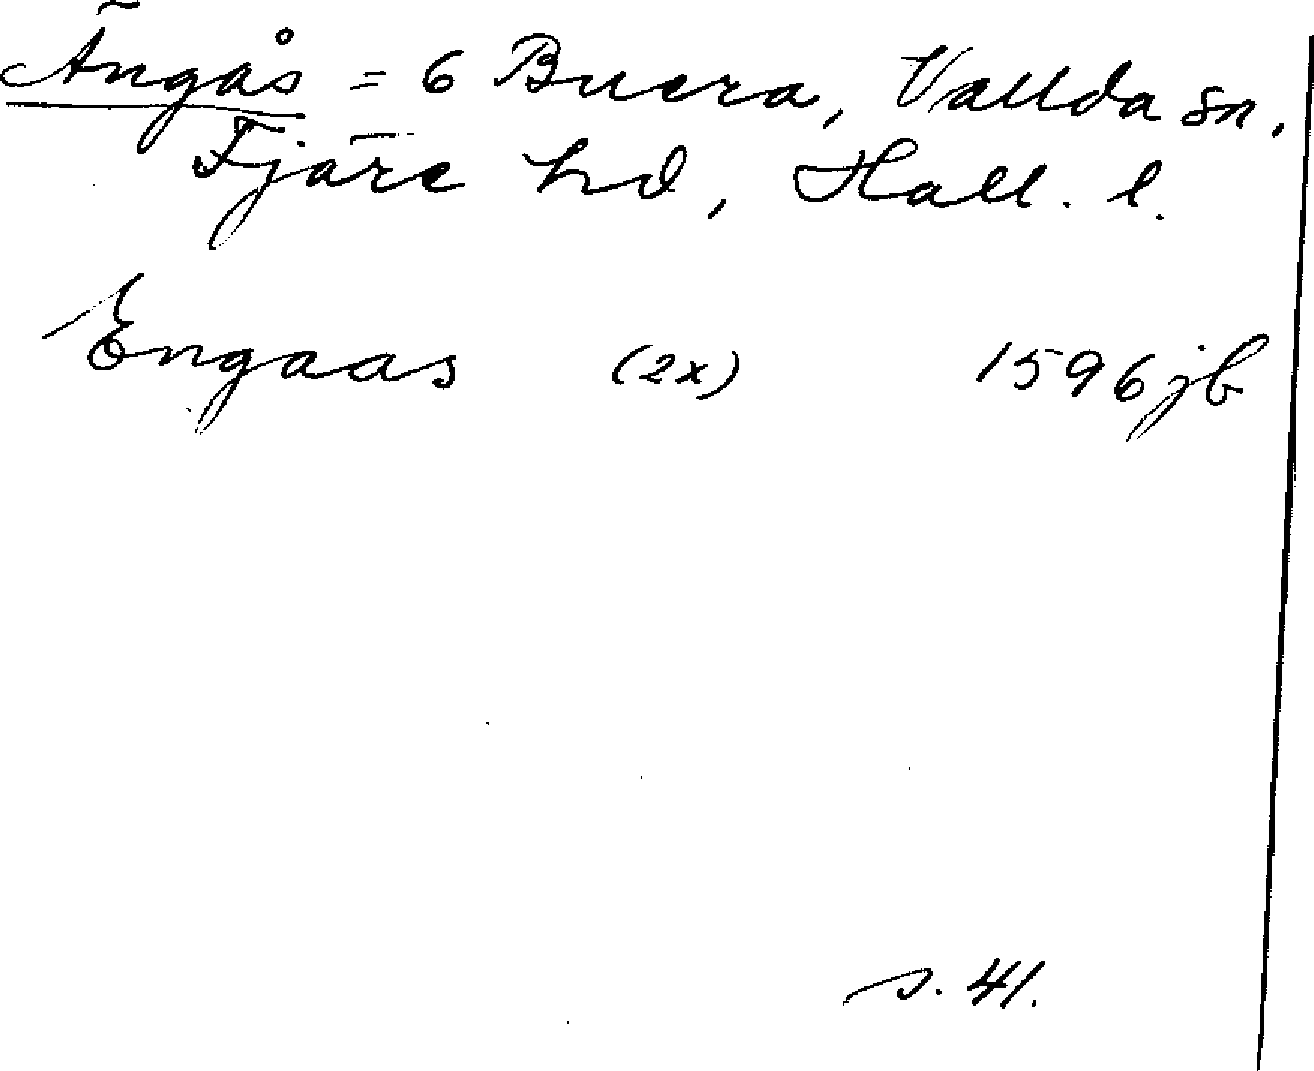 Ängås = 6 Buera, Vallda sn,
Fjäre hd, Hall. l.
Engaas (2x) 1596 jb
s. 41.